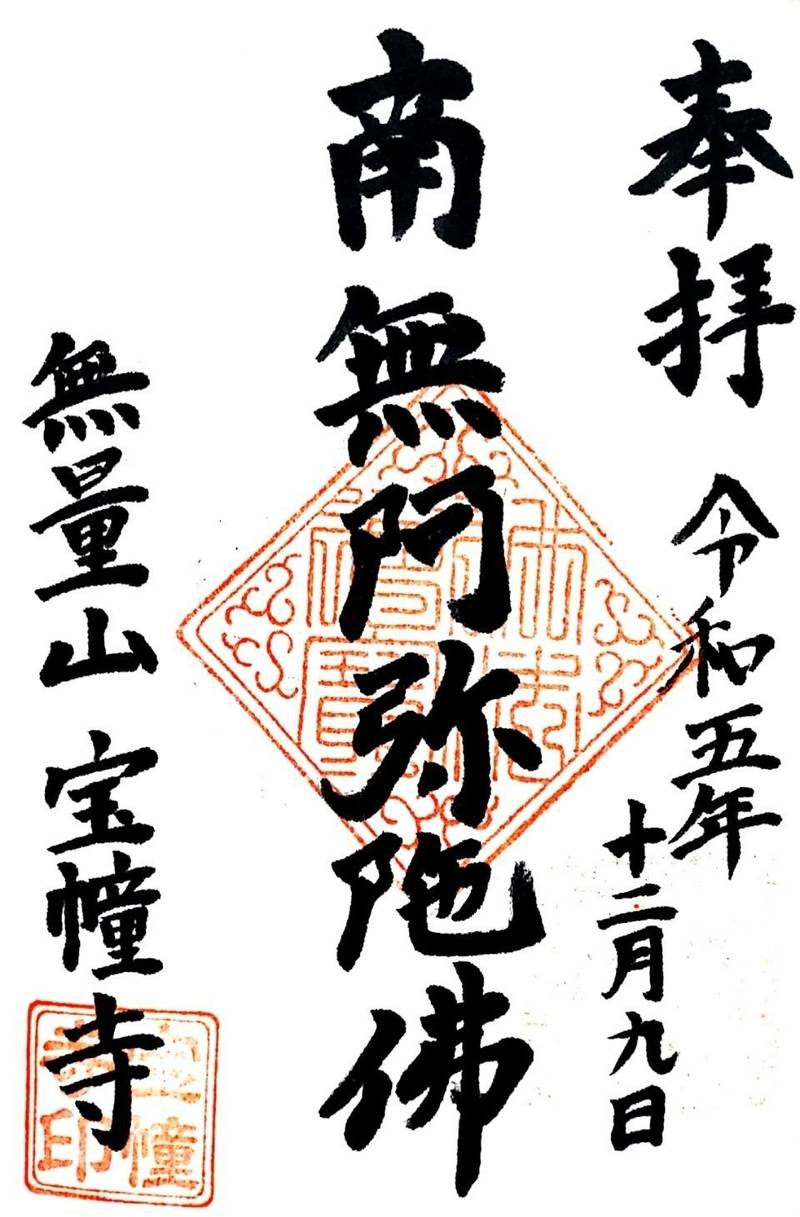 奉拝
令和五年
十二月九日
南無阿弥陀佛
無量山 宝幢寺
佛法僧寶
宝幢寺印